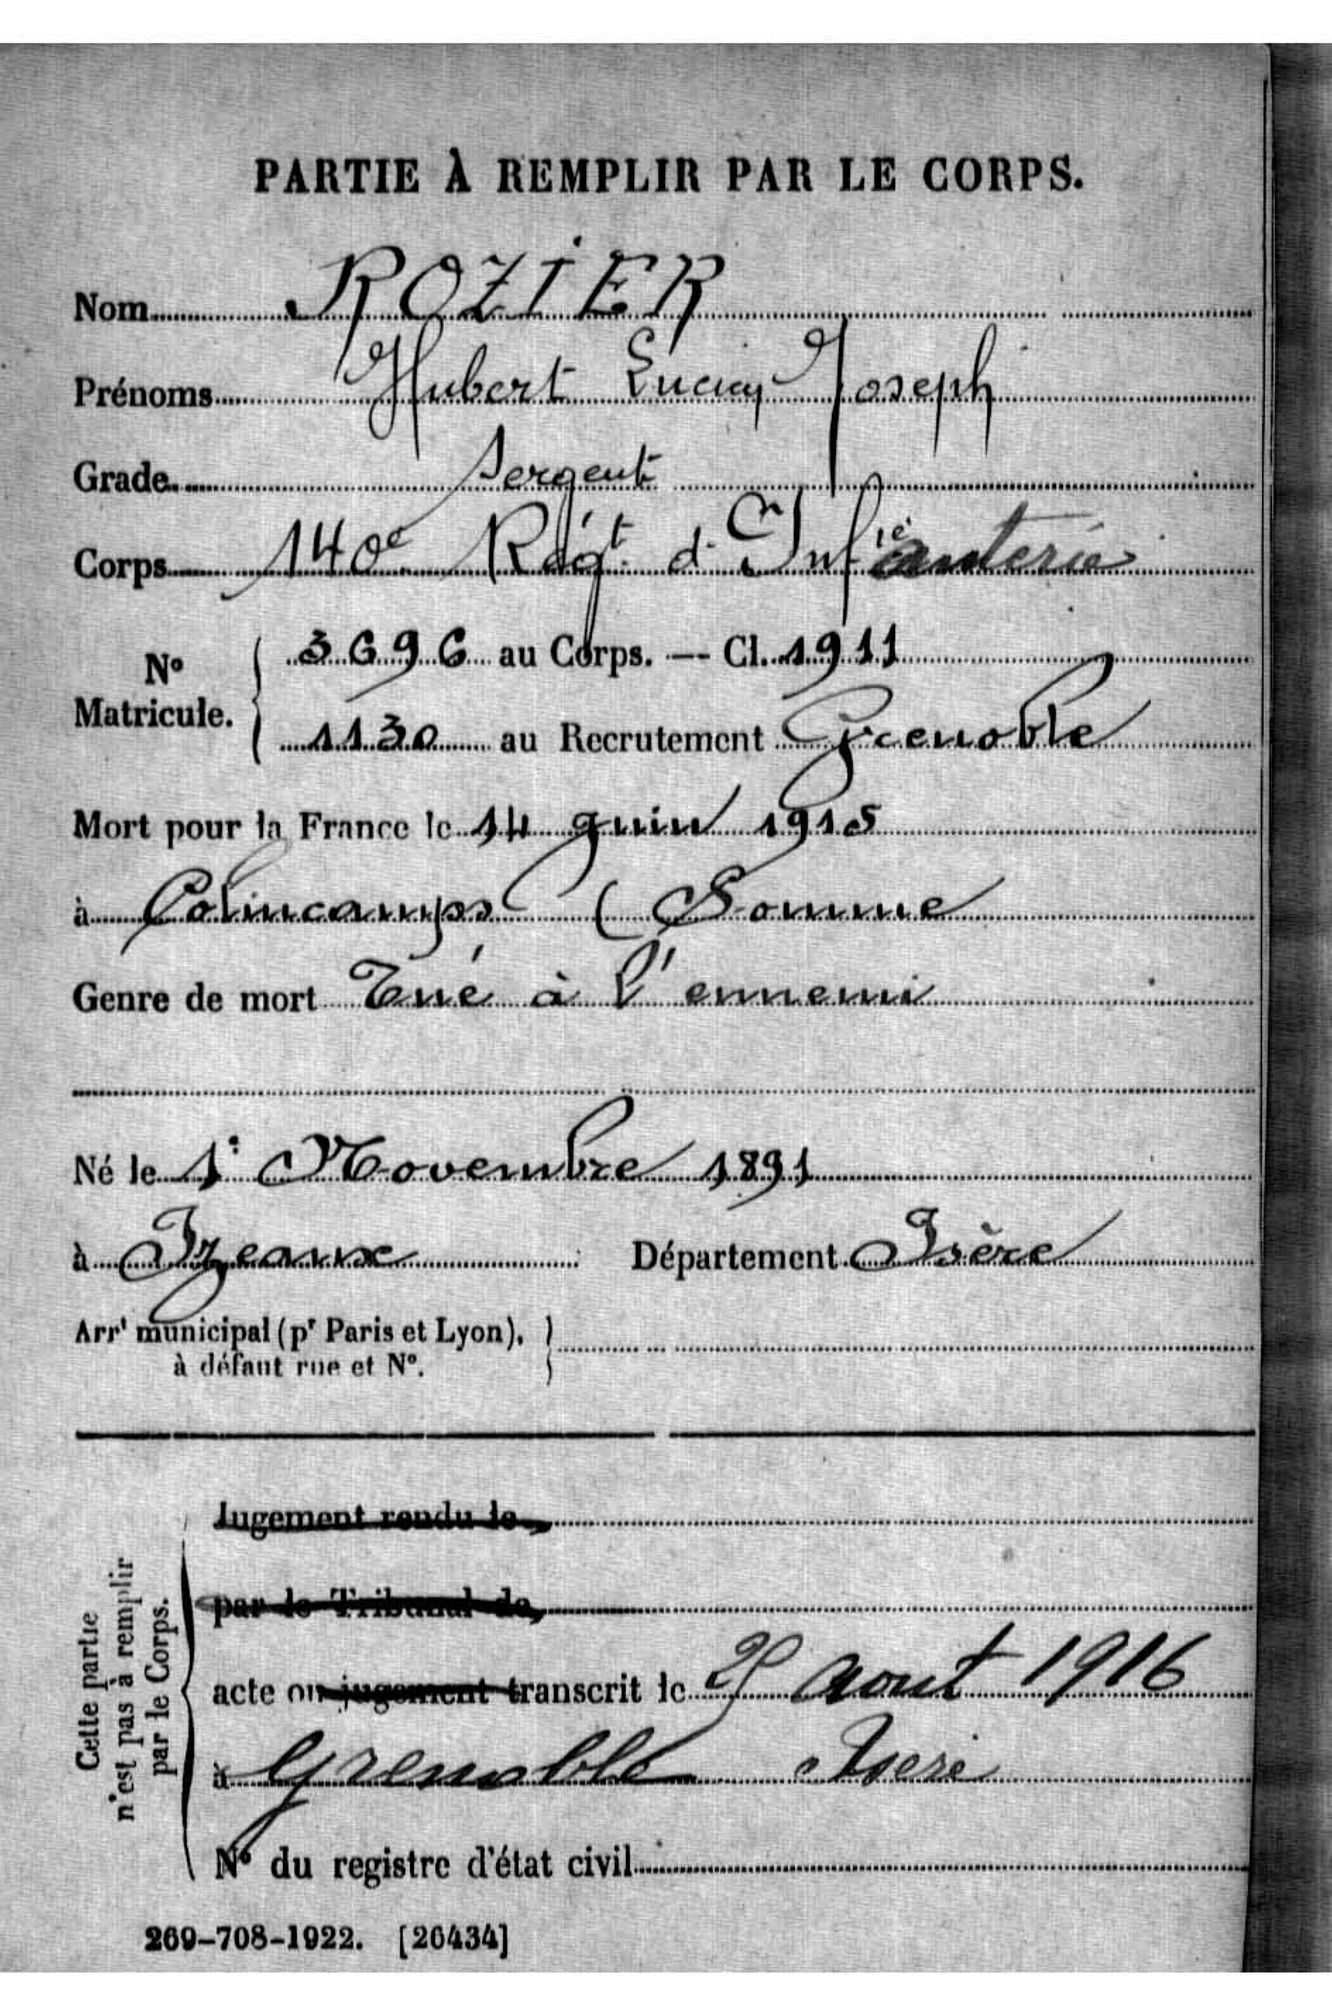 PARTIE À REMPLIR PAR LE CORPS.
Nom ROZIER
Prénoms Hubert Lucien Joseph
Grade Sergent
Corps 140e Régt d'Infanterie
No Matricule. { 3696 au Corps. — Cl. 1911
1130 au Recrutement Grenoble
Mort pour la France le 14 Juin 1915
à Colincamps (Somme
Genre de mort Tué à l'ennemi
Né le 1 Novembre 1891
à Izeaux Département Isère
Arrt municipal (pr Paris et Lyon), }
à défaut rue et No.
Cette partie
n'est pas à remplir
par le Corps.
Jugement rendu le
par le Tribunal de
acte ou jugement transcrit le août 1916
à Grenoble Isère
No du registre d'état civil
269-708-1922. [26434]